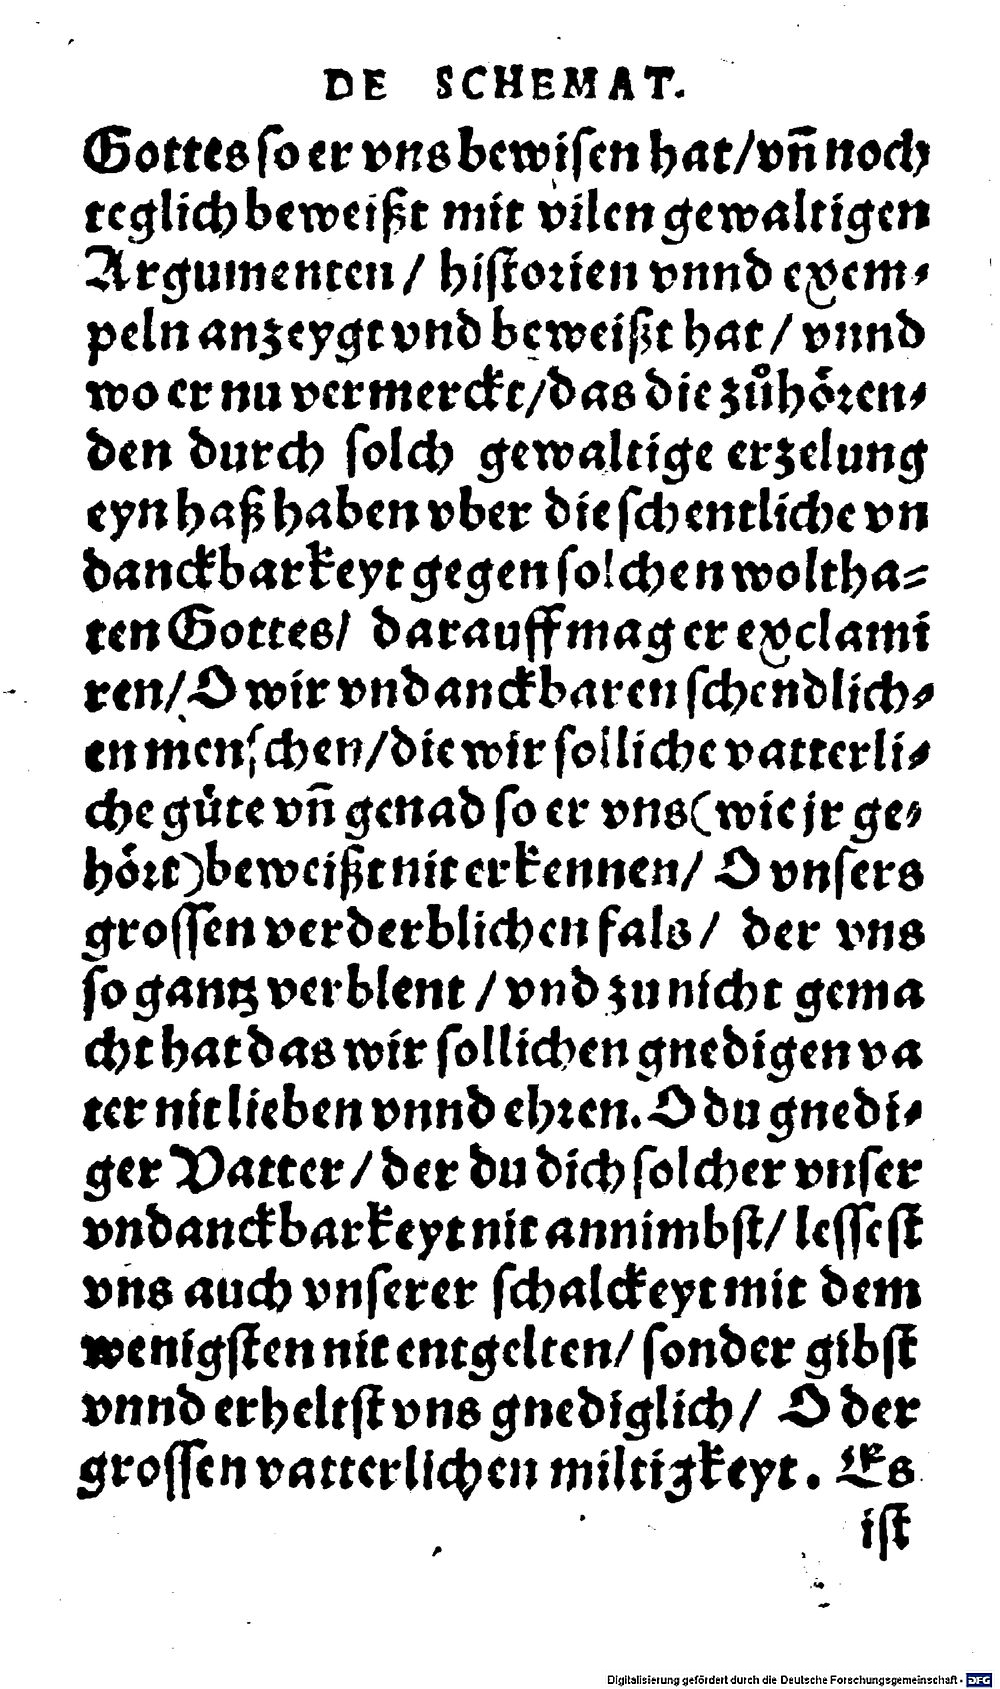 DE SCHEMAT.
Gottes so er vns bewisen hat/vn̄ noch
teglich beweißt mit vilen gewaltigen
Argumenten/ historien vnnd exem⸗
peln anzeygt vnd beweißt hat/ vnnd
wo er nu vermerckt/das die zůhoͤren⸗
den durch solch gewaltige erzelung
eyn haß haben vber die schentliche vn
danckbarkeyt gegen solchen woltha⸗
ten Gottes/ darauff mag er exclami
ren/O wir vndanckbaren schendlich⸗
en menschen/die wir solliche vatterli⸗
che guͤte vn̄ genad so er vns(wie jr ge⸗
hoͤrt)beweißt nit erkennen/ O vnsers
grossen verderblichen fals/ der vns
so gantz verblent /vnd zu nicht gema
cht hat das wir sollichen gnedigen va
ter nit lieben vnnd ehren. O du gnedi⸗
ger Vatter/der du dich solcher vnser
vndanckbarkeyt nit annimbst/ lessest
vns auch vnserer schalckeyt mit dem
wenigsten nit entgelten/ sonder gibst
vnnd erheltst vns gnediglich/ O der
grossen vatterlichen miltigkeyt. Es
ist
Digitalisierung gefördert durch die Deutsche Forschungsgemeinschaft - DFG